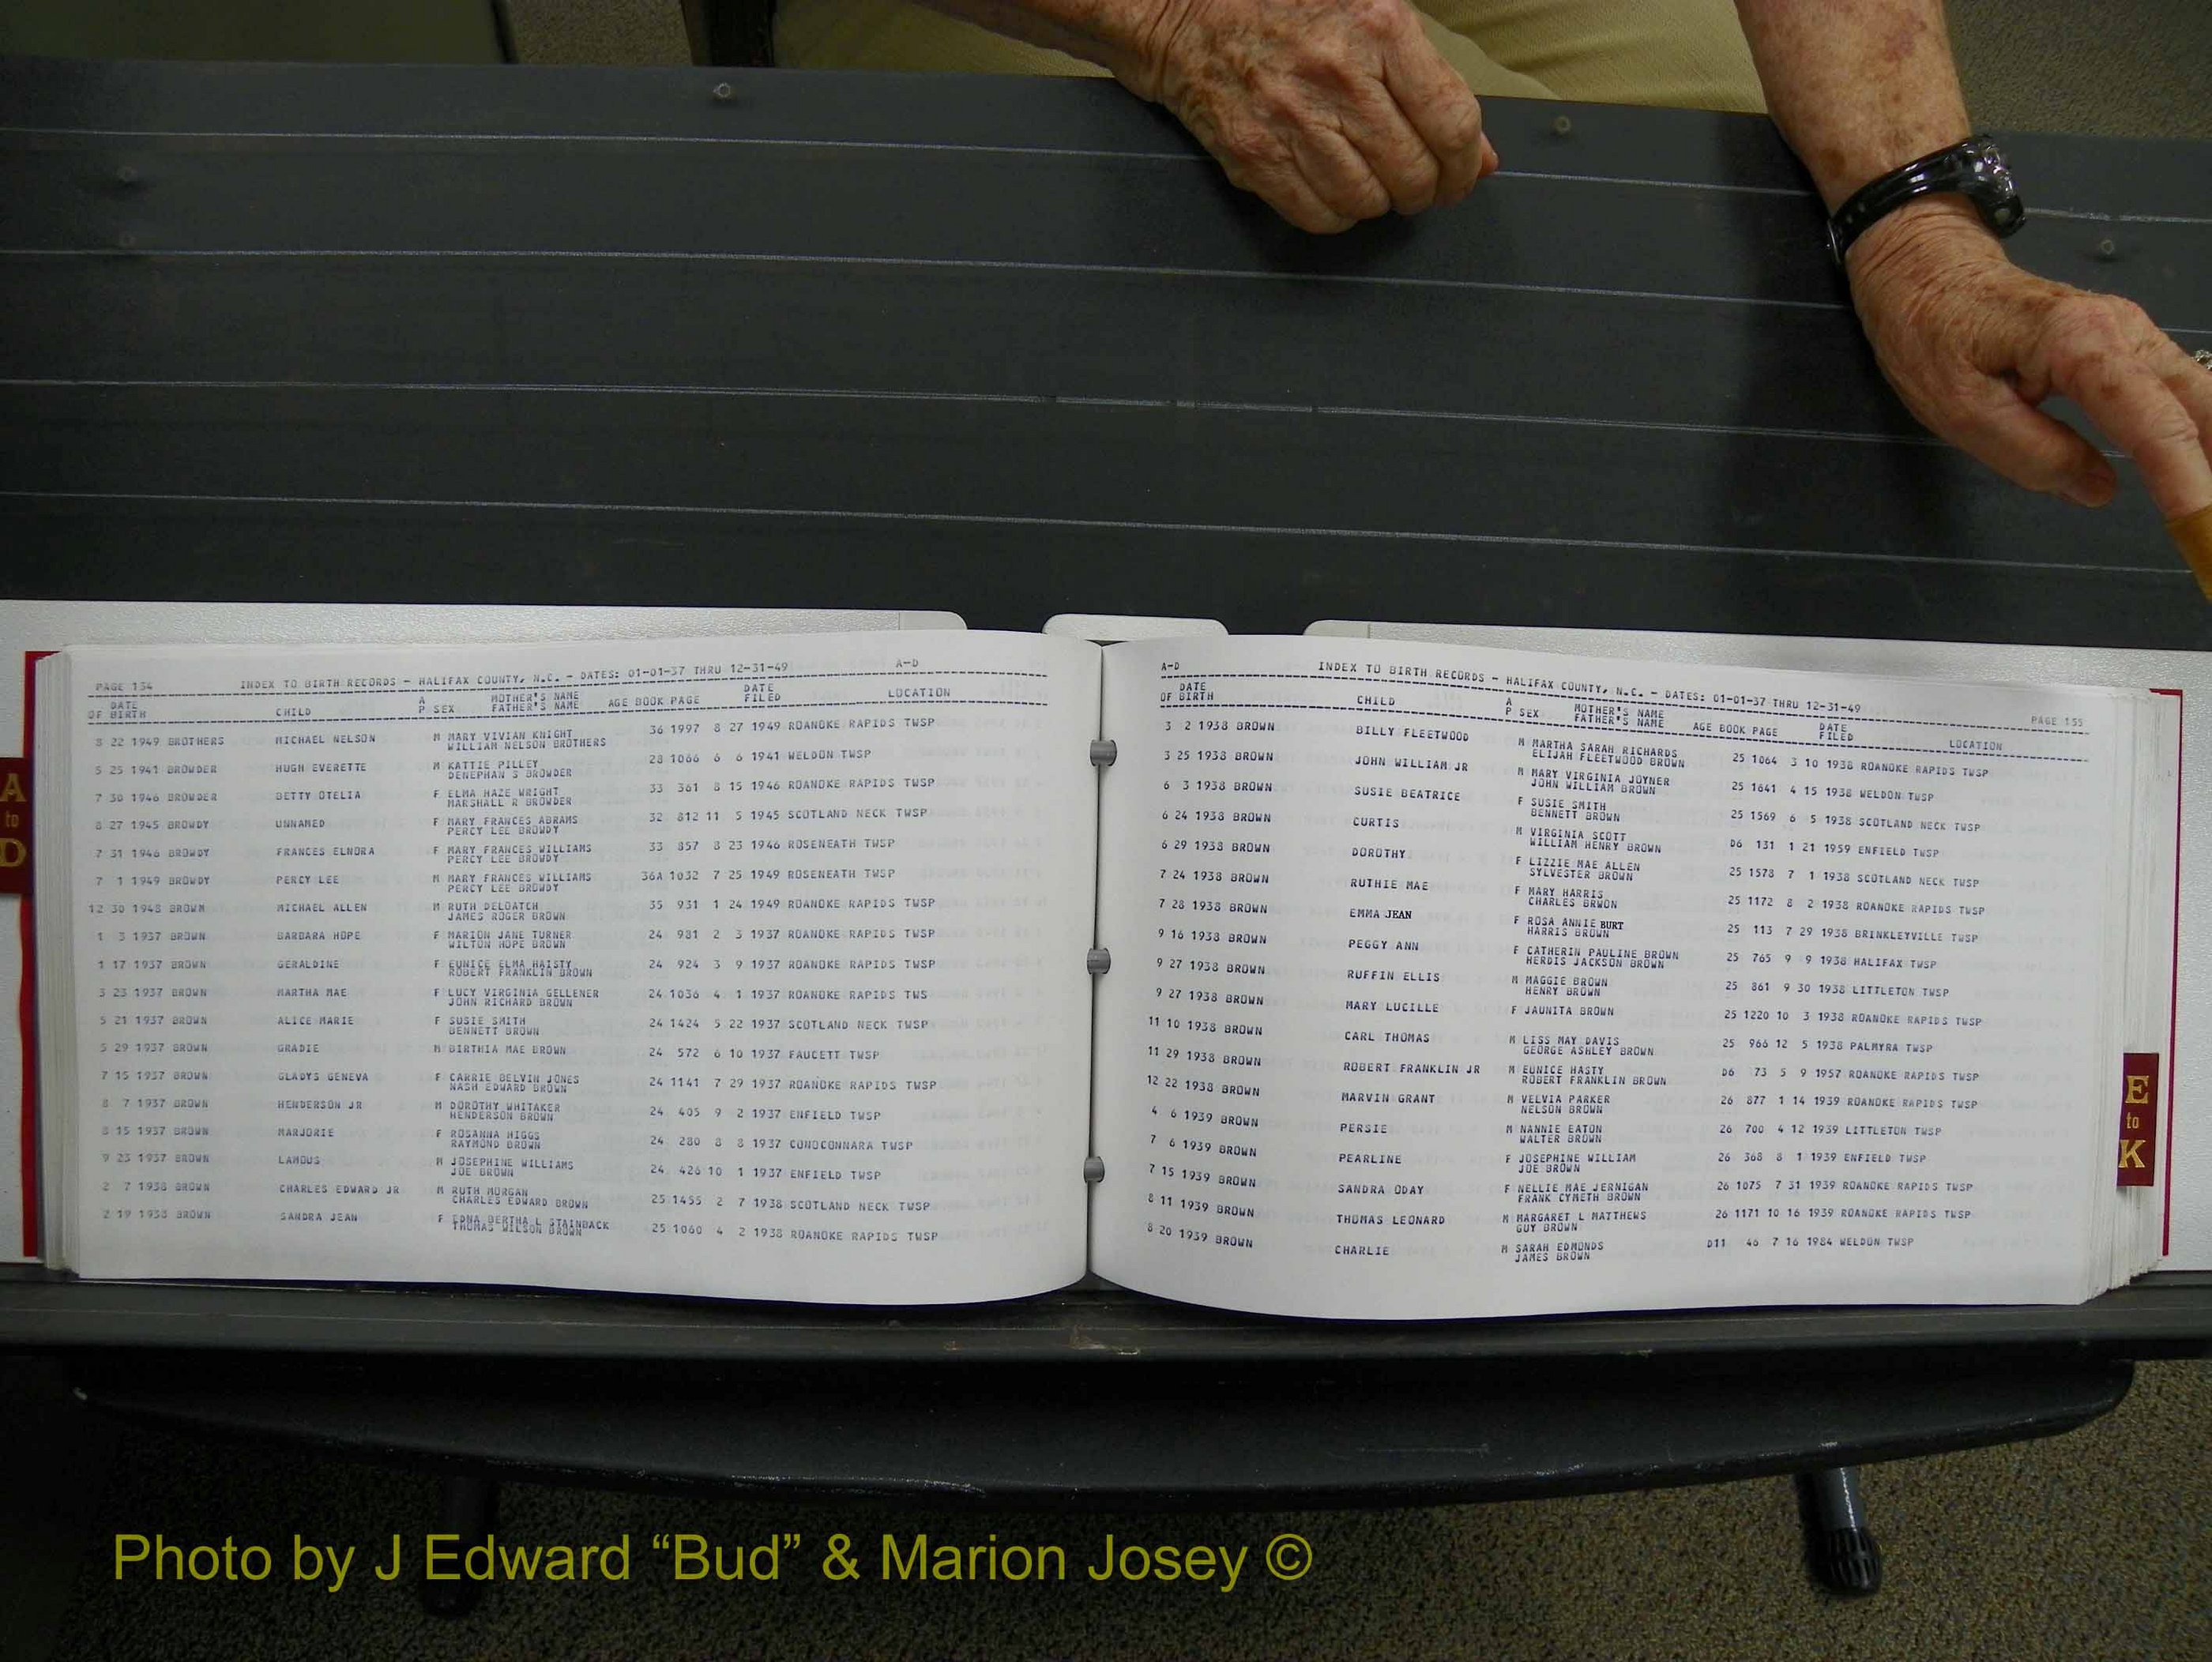 A
to
D
PAGE 154 INDEX TO BIRTH RECORDS - HALIFAX COUNTY, N.C. - DATES: 01-01-37 THRU 12-31-49 A-D
DATE A MOTHER'S NAME DATE
OF BIRTH CHILD P SEX FATHER'S NAME AGE BOOK PAGE FILED LOCATION
8 22 1949 BROTHERS MICHAEL NELSON M MARY VIVIAN KNIGHT 36 1997 8 27 1949 ROANOKE RAPIDS TWSP
WILLIAM NELSON BROTHERS
5 25 1941 BROWDER HUGH EVERETTE M KATTIE PILLEY 28 1066 6 6 1941 WELDON TWSP
DENEPHAN S BROWDER
7 30 1946 BROWDER BETTY OTELIA F ELMA HAZE WRIGHT 33 361 8 15 1946 ROANOKE RAPIDS TWSP
MARSHALL R BROWDER
8 27 1945 BROWDY UNNAMED F MARY FRANCES ABRAMS 32 812 11 5 1945 SCOTLAND NECK TWSP
PERCY LEE BROWDY
7 31 1946 BROWDY FRANCES ELNORA F MARY FRANCES WILLIAMS 33 857 8 23 1946 ROSENEATH TWSP
PERCY LEE BROWDY
7 1 1949 BROWDY PERCY LEE M MARY FRANCES WILLIAMS 36A 1032 7 25 1949 ROSENEATH TWSP
PERCY LEE BROWDY
12 30 1948 BROWN MICHAEL ALLEN M RUTH DELOATCH 35 931 1 24 1949 ROANOKE RAPIDS TWSP
JAMES ROGER BROWN
1 3 1937 BROWN BARBARA HOPE F MARION JANE TURNER 24 981 2 3 1937 ROANOKE RAPIDS TWSP
WILTON HOPE BROWN
1 17 1937 BROWN GERALDINE F EUNICE ELMA HAISTY 24 924 3 9 1937 ROANOKE RAPIDS TWSP
ROBERT FRANKLIN BROWN
3 23 1937 BROWN MARTHA MAE F LUCY VIRGINIA GELLENER 24 1036 4 1 1937 ROANOKE RAPIDS TWS
JOHN RICHARD BROWN
5 21 1937 BROWN ALICE MARIE F SUSIE SMITH 24 1424 5 22 1937 SCOTLAND NECK TWSP
BENNETT BROWN
5 29 1937 BROWN GRADIE M BIRTHIA MAE BROWN 24 572 6 10 1937 FAUCETT TWSP
7 15 1937 BROWN GLADYS GENEVA F CARRIE BELVIN JONES 24 1141 7 29 1937 ROANOKE RAPIDS TWSP
NASH EDWARD BROWN
8 7 1937 BROWN HENDERSON JR M DOROTHY WHITAKER 24 405 9 2 1937 ENFIELD TWSP
HENDERSON BROWN
8 15 1937 BROWN MARJORIE F ROSANNA HIGGS 24 280 8 8 1937 CONOCONNARA TWSP
RAYMOND BROWN
9 23 1937 BROWN LAMOUS M JOSEPHINE WILLIAMS 24 426 10 1 1937 ENFIELD TWSP
JOE BROWN
2 7 1938 BROWN CHARLES EDWARD JR M RUTH MORGAN 25 1455 2 7 1938 SCOTLAND NECK TWSP
CHARLES EDWARD BROWN
2 19 1938 BROWN SANDRA JEAN F EDNA BERTHA L STAINBACK 25 1060 4 2 1938 ROANOKE RAPIDS TWSP
THOMAS WILSON BROWN
A-D INDEX TO BIRTH RECORDS - HALIFAX COUNTY, N.C. - DATES: 01-01-37 THRU 12-31-49 PAGE 155
DATE A MOTHER'S NAME DATE
OF BIRTH CHILD P SEX FATHER'S NAME AGE BOOK PAGE FILED LOCATION
3 2 1938 BROWN BILLY FLEETWOOD M MARTHA SARAH RICHARDS 25 1064 3 10 1938 ROANOKE RAPIDS TWSP
ELIJAH FLEETWOOD BROWN
3 25 1938 BROWN JOHN WILLIAM JR M MARY VIRGINIA JOYNER 25 1641 4 15 1938 WELDON TWSP
JOHN WILLIAM BROWN
6 3 1938 BROWN SUSIE BEATRICE F SUSIE SMITH 25 1569 6 5 1938 SCOTLAND NECK TWSP
BENNETT BROWN
6 24 1938 BROWN CURTIS M VIRGINIA SCOTT D6 131 1 21 1959 ENFIELD TWSP
WILLIAM HENRY BROWN
6 29 1938 BROWN DOROTHY F LIZZIE MAE ALLEN 25 1578 7 1 1938 SCOTLAND NECK TWSP
SYLVESTER BROWN
7 24 1938 BROWN RUTHIE MAE F MARY HARRIS 25 1172 8 2 1938 ROANOKE RAPIDS TWSP
CHARLES BRWON
7 28 1938 BROWN EMMA JEAN F ROSA ANNIE BURT 25 113 7 29 1938 BRINKLEYVILLE TWSP
HARRIS BROWN
9 16 1938 BROWN PEGGY ANN F CATHERIN PAULINE BROWN 25 765 9 9 1938 HALIFAX TWSP
HERDIS JACKSON BROWN
9 27 1938 BROWN RUFFIN ELLIS M MAGGIE BROWN 25 861 9 30 1938 LITTLETON TWSP
HENRY BROWN
9 27 1938 BROWN MARY LUCILLE F JAUNITA BROWN 25 1220 10 3 1938 ROANOKE RAPIDS TWSP
11 10 1938 BROWN CARL THOMAS M LISS MAY DAVIS 25 966 12 5 1938 PALMYRA TWSP
GEORGE ASHLEY BROWN
11 29 1938 BROWN ROBERT FRANKLIN JR M EUNICE HASTY D6 73 5 9 1957 ROANOKE RAPIDS TWSP
ROBERT FRANKLIN BROWN
12 22 1938 BROWN MARVIN GRANT M VELVIA PARKER 26 877 1 14 1939 ROANOKE RAPIDS TWSP
NELSON BROWN
4 6 1939 BROWN PERSIE M NANNIE EATON 26 700 4 12 1939 LITTLETON TWSP
WALTER BROWN
7 6 1939 BROWN PEARLINE F JOSEPHINE WILLIAM 26 368 8 1 1939 ENFIELD TWSP
JOE BROWN
7 15 1939 BROWN SANDRA ODAY F NELLIE MAE JERNIGAN 26 1075 7 31 1939 ROANOKE RAPIDS TWSP
FRANK CYMETH BROWN
8 11 1939 BROWN THOMAS LEONARD M MARGARET L MATTHEWS 26 1171 10 16 1939 ROANOKE RAPIDS TWSP
GUY BROWN
8 20 1939 BROWN CHARLIE M SARAH EDMONDS D11 46 7 16 1984 WELDON TWSP
JAMES BROWN
E
to
K
Photo by J Edward “Bud” & Marion Josey ©